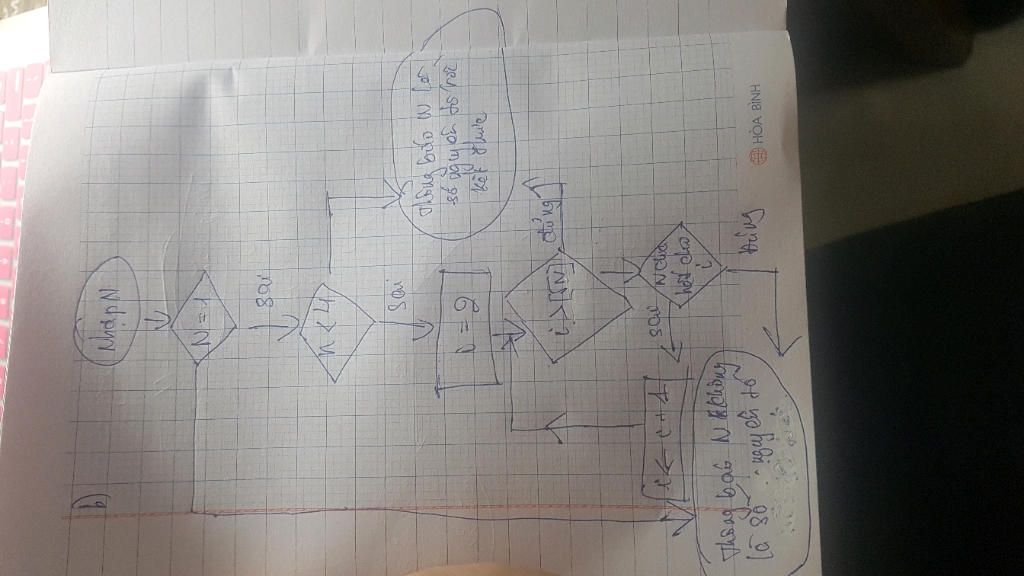 b)
Nhập N
N = 1
sai
N < 4
sai
Thông báo N là
số nguyên tố rồi
kết thúc
i = 2
i > [√N]
đúng
N chia
hết cho
i
sai
Đúng
i ← i + 1
Thông báo N không
là số nguyên tố
HÒA BÌNH